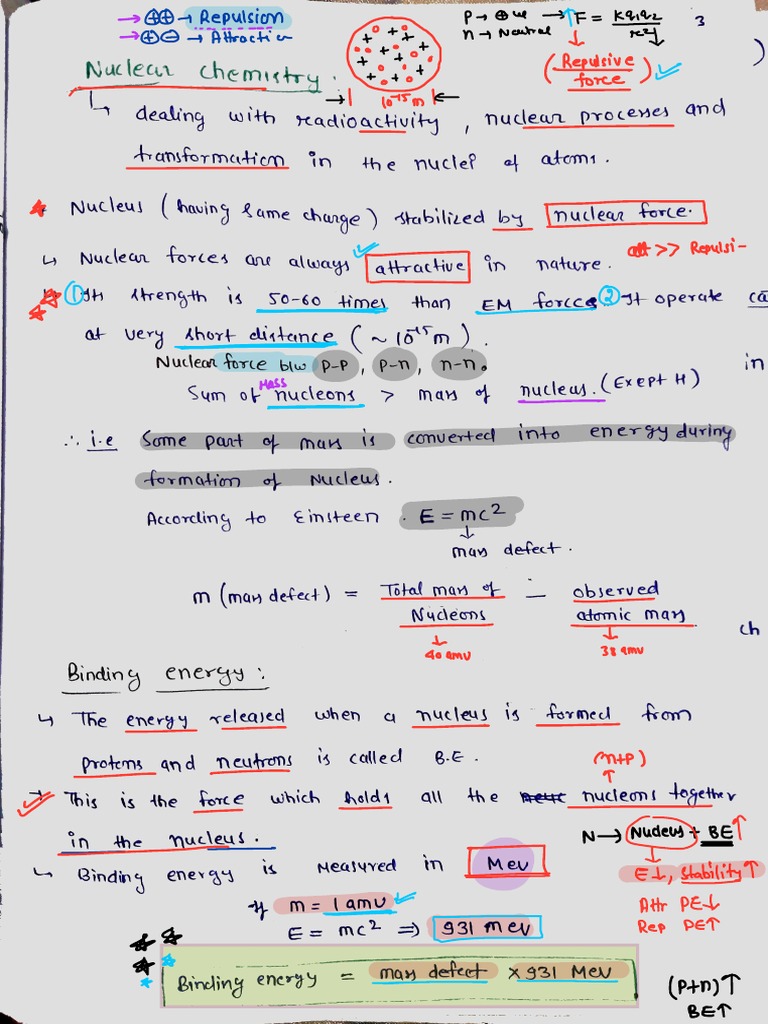 → ⊕⊕ → Repulsion
→ ⊕⊖ → Attractio
P → ⊕ve → ↑F = Kq1q2 / r²
n → Neutral
3
(Repulsive force) ✓
)
Nuclear chemistry.
10⁻¹⁵m
↳ dealing with radioactivity, nuclear processes and
transformation in the nuclei of atoms.
★ Nucleus (having same charge) stabilized by nuclear force.
↳ Nuclear forces are always attractive in nature.
att >> Repulsi-
① Its strength is 50-60 times than EM forces ② It operate
at very short distance (~10⁻¹⁵m).
Nuclear force b/w P-P, P-n, n-n.
in
Sum of Mass nucleons > mass of nucleus. (Exept H)
∴ i.e Some part of mass is converted into energy during
formation of Nucleus.
According to Einsteen. E = mc²
↓
mass defect.
m (mass defect) = Total mass of Nucleons – observed atomic mass
↓ 40 amu
↓ 38 amu
ch
Binding energy :
↳ The energy released when a nucleus is formed from
protens and neutrons is called B.E.
(n+P)
↑
→ This is the force which holds all the nucleons together
in the nucleus.
N → Nucleus + BE↑
↓
E↓, stability↑
Attr PE↓
Rep PE↑
↳ Binding energy is measured in Mev
If m = 1 amu
E = mc² ⇒ 931 mev
Binding energy = mass defect × 931 Mev
(P+n)↑
BE↑